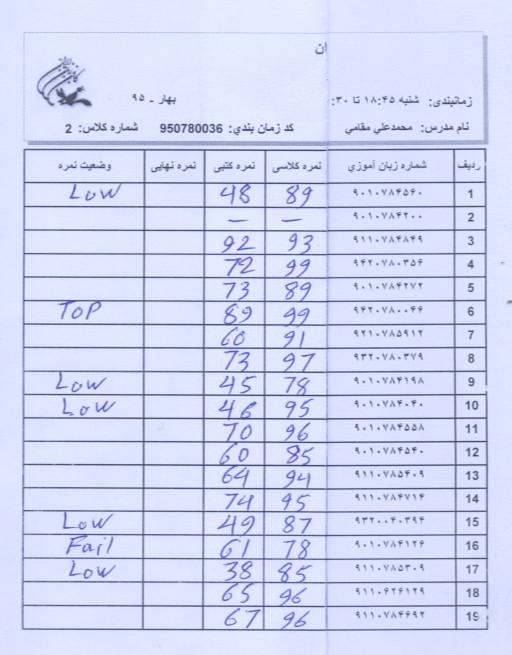 ان
زمانبندی: شنبه ۱۸:۴۵ تا ۳۰: بهار ـ ۹۵
نام مدرس: محمدعلي مقامي کد زمان بندي: 950780036 شماره کلاس: 2
رديف شماره زبان آموزي نمره کلاسي نمره کتبي نمره نهايي وضعيت نمره
1 ۹۰۱۰۷۸۴۵۶۰ 89 48 Low
2 ۹۰۱۰۷۸۴۲۰۰ — —
3 ۹۱۱۰۷۸۴۸۴۹ 93 92
4 ۹۴۲۰۷۸۰۳۵۶ 99 72
5 ۹۰۱۰۷۸۴۲۷۲ 89 73
6 ۹۴۲۰۷۸۰۰۴۶ 99 89 TOP
7 ۹۲۱۰۷۸۵۹۱۲ 91 60
8 ۹۳۲۰۷۸۰۳۷۹ 97 73
9 ۹۰۱۰۷۸۴۱۹۸ 78 45 Low
10 ۹۰۱۰۷۸۴۰۴۰ 95 46 Low
11 ۹۰۱۰۷۸۴۵۵۸ 96 70
12 ۹۰۱۰۷۸۴۵۴۰ 85 60
13 ۹۱۱۰۷۸۵۴۰۹ 94 64
14 ۹۱۱۰۷۸۴۷۱۴ 95 74
15 ۹۳۲۰۰۴۰۳۹۴ 87 49 Low
16 ۹۰۱۰۷۸۴۱۲۶ 78 61 Fail
17 ۹۱۱۰۷۸۵۳۰۹ 85 38 Low
18 ۹۱۱۰۶۲۶۱۲۹ 96 65
19 ۹۱۱۰۷۸۴۶۹۲ 96 67